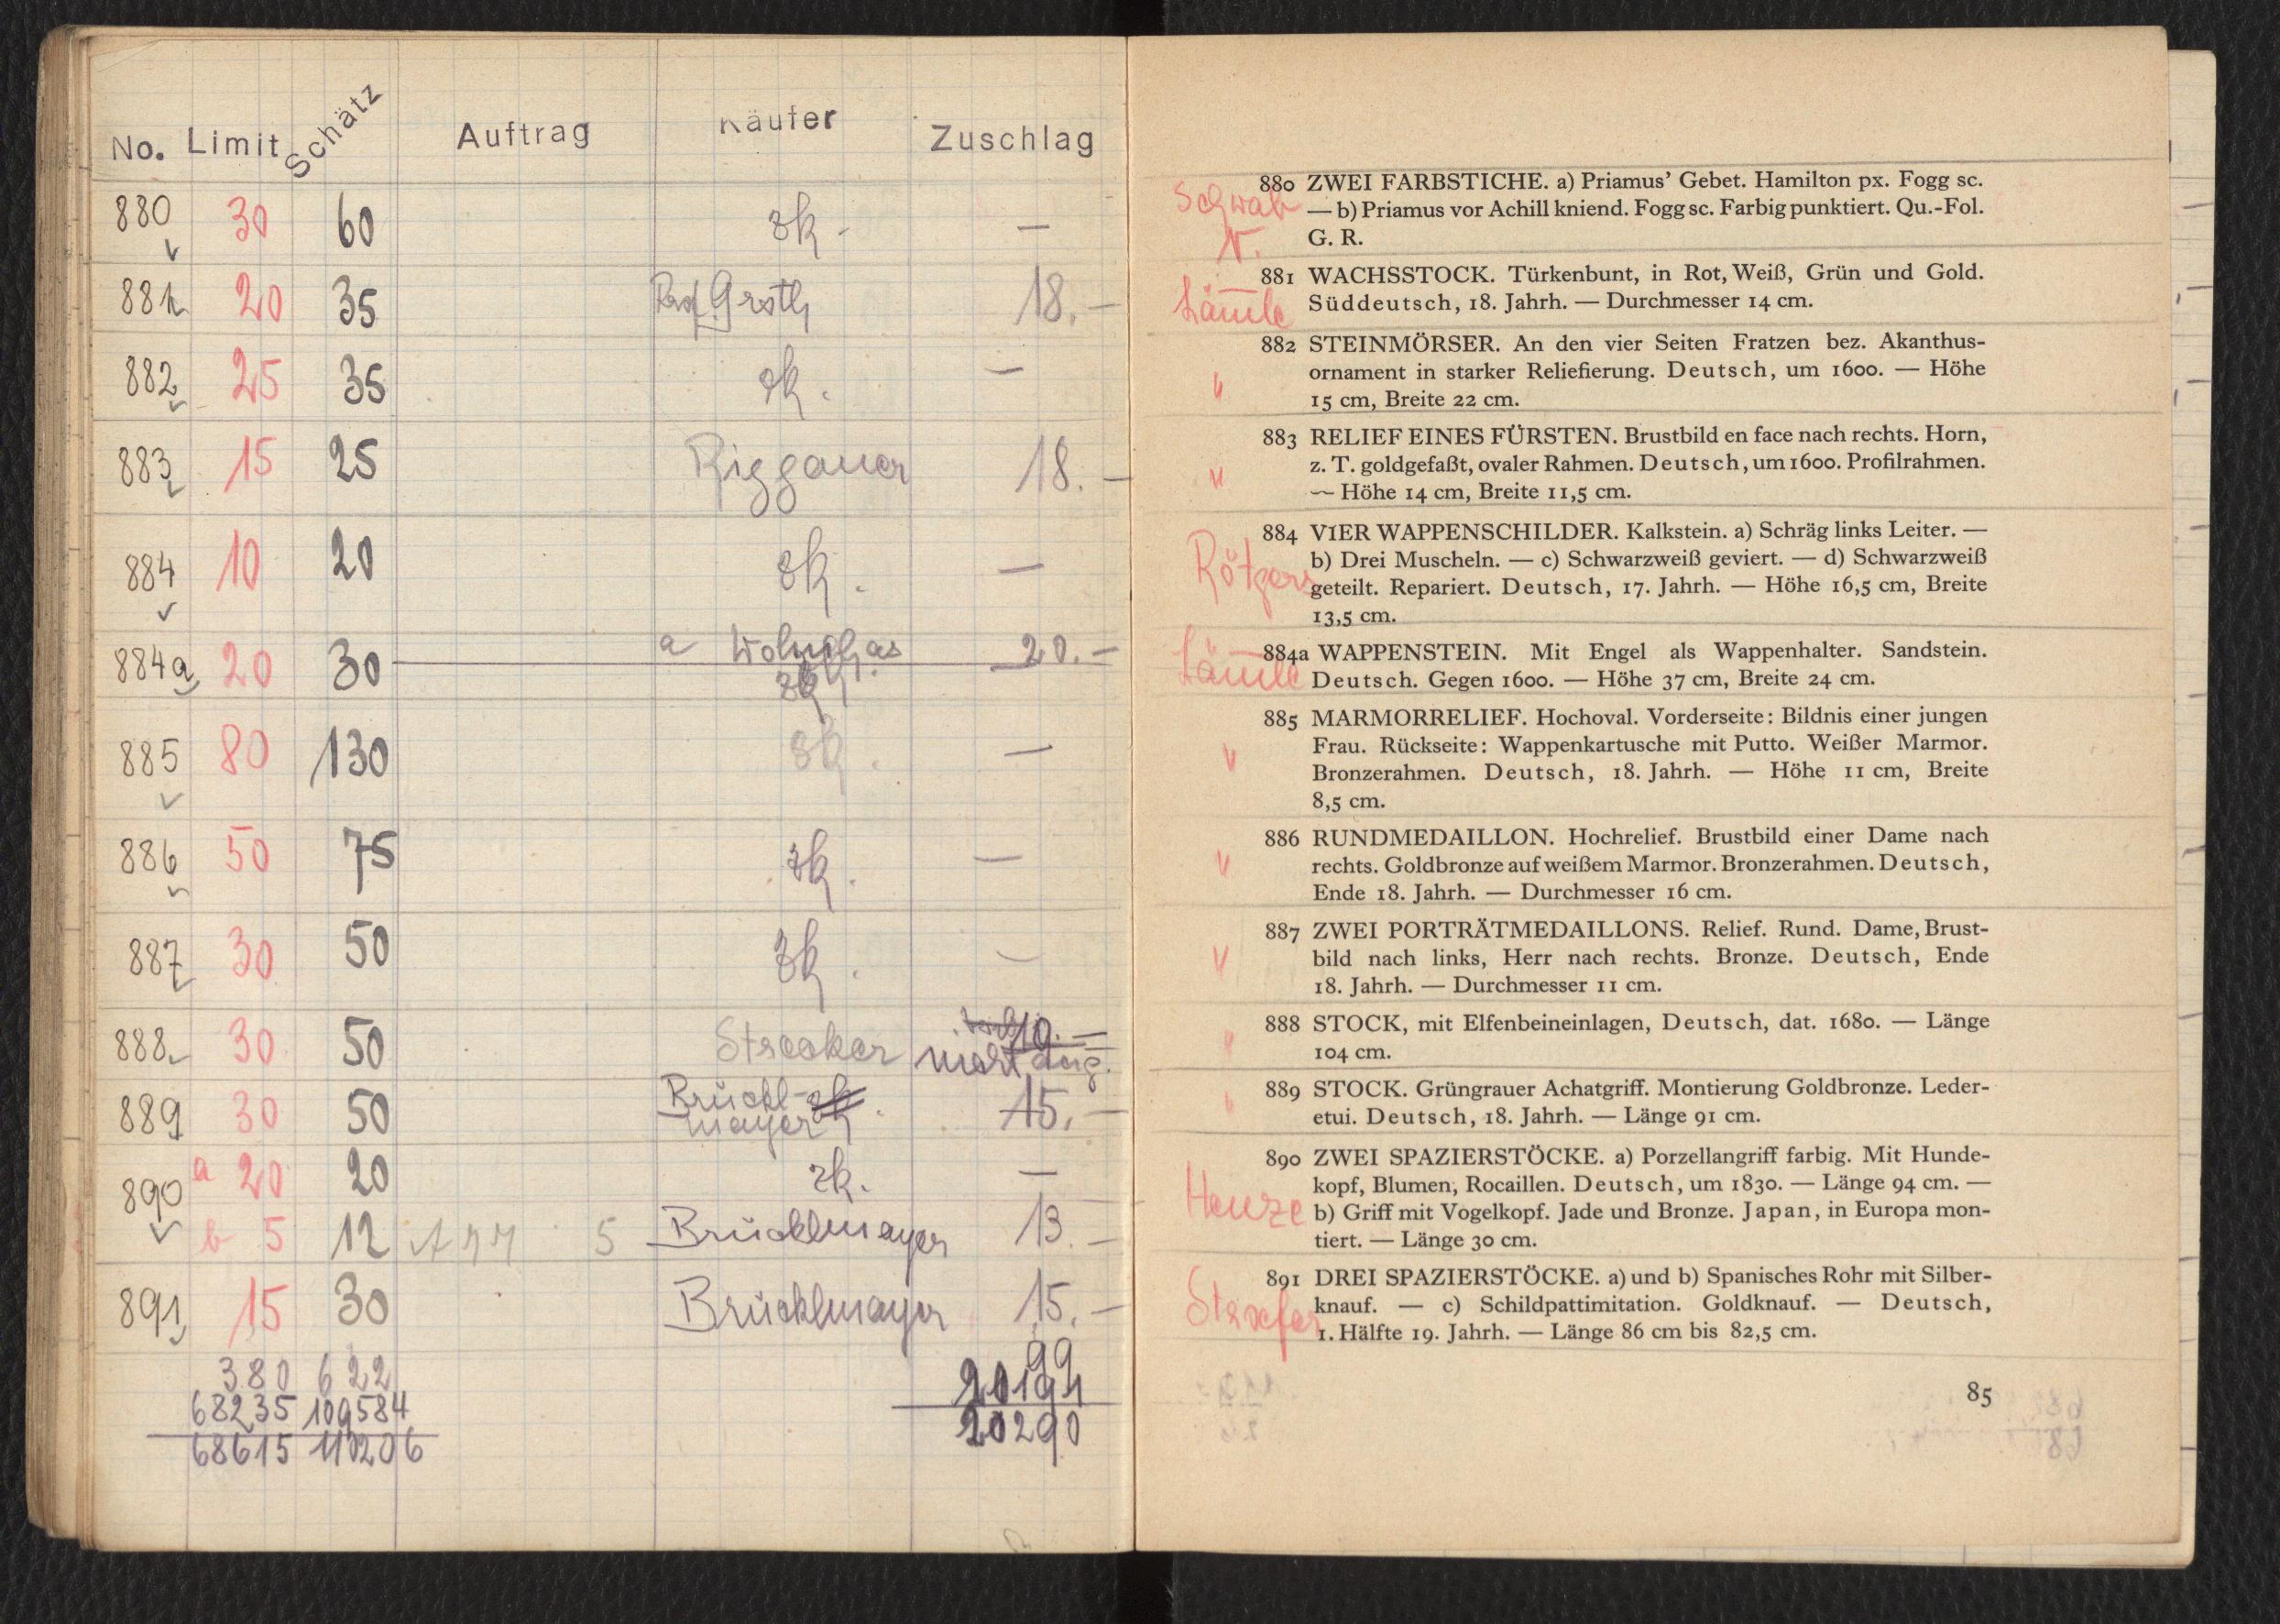 No. Limit Schätz Auftrag Käufer Zuschlag
880 30 60 zk. —
881 20 35 18.—
882 25 35 zk. —
883 15 25 Riggauer 18.—
884 10 20 zk. —
884a 20 30 a 20.—
zk
885 80 130 zk. —
886 50 75 zk. —
887 30 50 zk. —
888 30 50 Strecker 10.—
nicht
889 30 50 Brückl- zk. 15.—
mayer
890 a 20 20 zk. —
b 5 12 5 Brücklmayer 13.—
891 15 30 Brücklmayer 15.—
380 622 99
68235 109584 20191
68615 110206 20290
Schwab
N.
880 ZWEI FARBSTICHE. a) Priamus’ Gebet. Hamilton px. Fogg sc.
— b) Priamus vor Achill kniend. Fogg sc. Farbig punktiert. Qu.-Fol.
G. R.
Lämle
881 WACHSSTOCK. Türkenbunt, in Rot, Weiß, Grün und Gold.
Süddeutsch, 18. Jahrh. — Durchmesser 14 cm.
"
882 STEINMÖRSER. An den vier Seiten Fratzen bez. Akanthus-
ornament in starker Reliefierung. Deutsch, um 1600. — Höhe
15 cm, Breite 22 cm.
"
883 RELIEF EINES FÜRSTEN. Brustbild en face nach rechts. Horn,
z. T. goldgefaßt, ovaler Rahmen. Deutsch, um 1600. Profilrahmen.
— Höhe 14 cm, Breite 11,5 cm.
Rötgers
884 VIER WAPPENSCHILDER. Kalkstein. a) Schräg links Leiter. —
b) Drei Muscheln. — c) Schwarzweiß geviert. — d) Schwarzweiß
geteilt. Repariert. Deutsch, 17. Jahrh. — Höhe 16,5 cm, Breite
13,5 cm.
Lämle
884a WAPPENSTEIN. Mit Engel als Wappenhalter. Sandstein.
Deutsch. Gegen 1600. — Höhe 37 cm, Breite 24 cm.
"
885 MARMORRELIEF. Hochoval. Vorderseite: Bildnis einer jungen
Frau. Rückseite: Wappenkartusche mit Putto. Weißer Marmor.
Bronzerahmen. Deutsch, 18. Jahrh. — Höhe 11 cm, Breite
8,5 cm.
"
886 RUNDMEDAILLON. Hochrelief. Brustbild einer Dame nach
rechts. Goldbronze auf weißem Marmor. Bronzerahmen. Deutsch,
Ende 18. Jahrh. — Durchmesser 16 cm.
"
887 ZWEI PORTRÄTMEDAILLONS. Relief. Rund. Dame, Brust-
bild nach links, Herr nach rechts. Bronze. Deutsch, Ende
18. Jahrh. — Durchmesser 11 cm.
"
888 STOCK, mit Elfenbeineinlagen, Deutsch, dat. 1680. — Länge
104 cm.
"
889 STOCK. Grüngrauer Achatgriff. Montierung Goldbronze. Leder-
etui. Deutsch, 18. Jahrh. — Länge 91 cm.
Henze
890 ZWEI SPAZIERSTÖCKE. a) Porzellangriff farbig. Mit Hunde-
kopf, Blumen, Rocaillen. Deutsch, um 1830. — Länge 94 cm. —
b) Griff mit Vogelkopf. Jade und Bronze. Japan, in Europa mon-
tiert. — Länge 30 cm.
891 DREI SPAZIERSTÖCKE. a) und b) Spanisches Rohr mit Silber-
knauf. — c) Schildpattimitation. Goldknauf. — Deutsch,
1. Hälfte 19. Jahrh. — Länge 86 cm bis 82,5 cm.
85